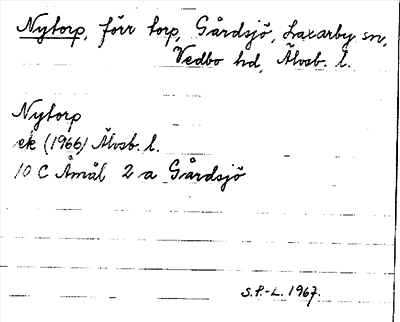 Nytorp, förr torp, Gårdsjö, Laxarby sn,
Vedbo hd, Älvsb. l.
Nytorp
ek (1966) Älvsb. l.
10 C Åmål 2 a Gårdsjö
S.P.-L. 1967.